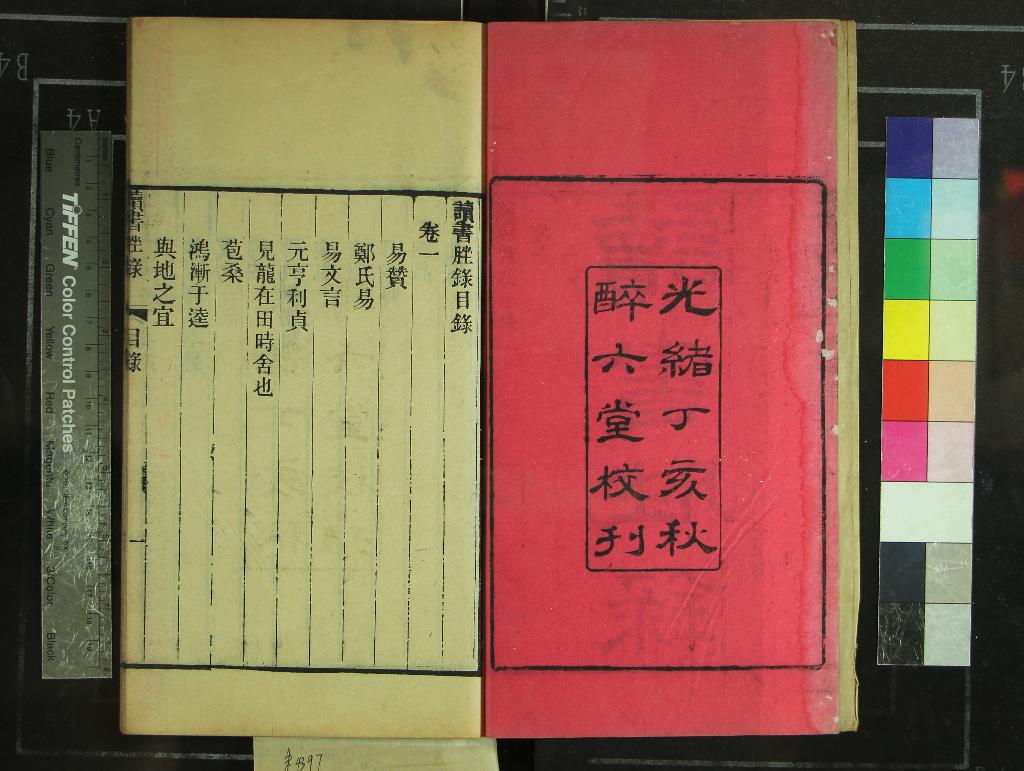 光緒丁亥秋
醉六堂校刋
讀書脞錄目錄
卷一
易贊
鄭氏易
易文言
元亨利貞
見龍在田時舍也
苞桑
鴻漸于逵
與地之宜
讀書脞錄
目錄
一
Centimetres
Inches
TIFFEN Color Control Patches
Blue
Cyan
Green
Yellow
Red
Magenta
White
3/Color
Black
A4
B4